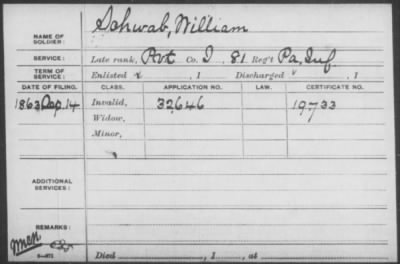 NAME OF SOLDIER: Schwab, William
SERVICE: Late rank, Pvt Co. I, 81 Reg't Pa, Inf.
TERM OF SERVICE: Enlisted , 1 Discharged , 1
DATE OF FILING. CLASS. APPLICATION NO. LAW. CERTIFICATE NO.
1863 Dec, 14 Invalid, 32,646 19,733
Widow,
Minor,
ADDITIONAL SERVICES:
REMARKS:
Died , 1 , at